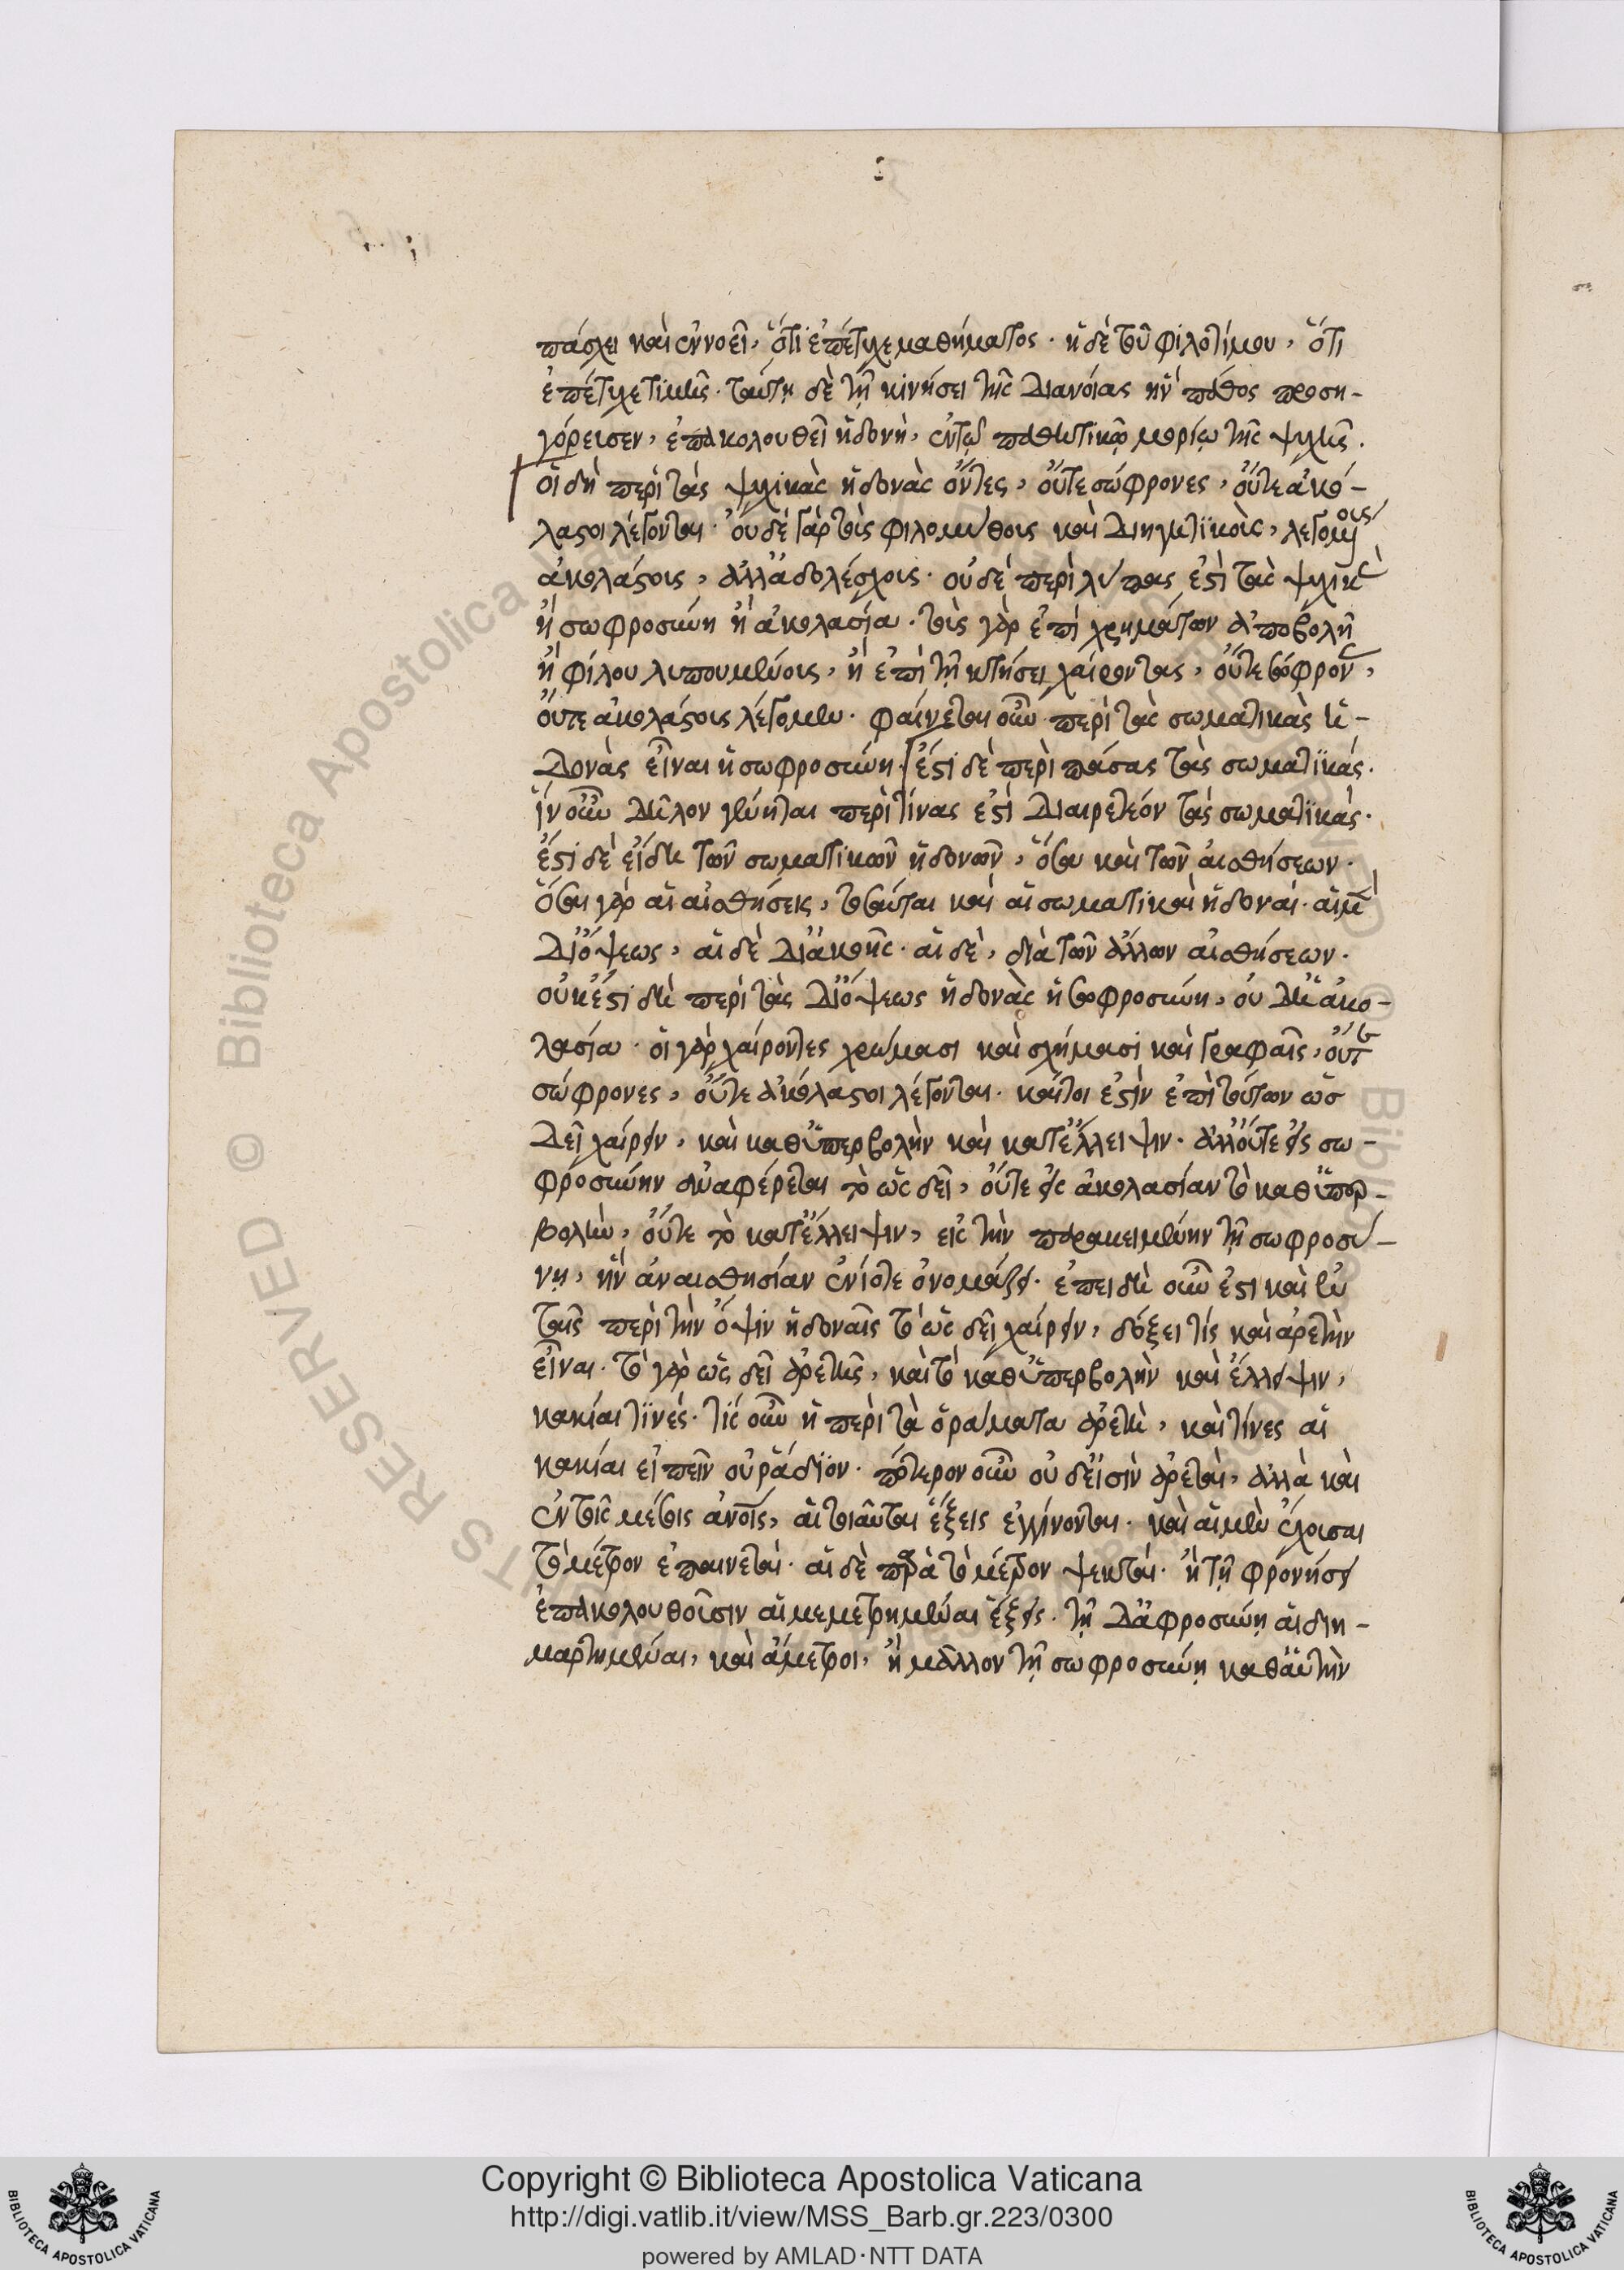 πάσχει καὶ ἐννοεῖ, ὅτι ἐπέτυχε μαθήματος. ἡ δὲ τοῦ φιλοτίμου, ὅτι
ἐπέτυχε τιμῆς. ταύτῃ δὲ τῇ κινήσει τῆς διανοίας ἣν πάθος προση-
γόρευσεν, ἐπακολουθεῖ ἡδονὴ, ἐν τῷ παθητικῷ μορίῳ τῆς ψυχῆς.
οἱ δὴ περὶ τὰς ψυχικὰς ἡδονὰς ὄντες, οὔτε σώφρονες, οὔτε ἀκό-
λαστοι λέγονται. οὐδὲ γὰρ τοῖς φιλομύθοις καὶ διηγητικοῖς, λεγομένοις
ἀκολάστοις, ἀλλ' ἀδολέσχοις. οὐδὲ περὶ λύπας ἐστὶ τὰς ψυχικὰς
ἡ σωφροσύνη ἢ ἀκολασία. τοῖς γὰρ ἐπὶ χρημάτων ἀποβολῇ
ἢ φίλου λυπουμένοις, ἢ ἐπὶ τῇ κτήσει χαίροντας, οὔτε σόφρον,
οὔτε ἀκολάστοις λέγομεν. φαίνεται οὖν περὶ τὰς σωματικὰς ἡ-
δονὰς εἶναι ἡ σωφροσύνη. ἐστὶ δὲ περὶ πάσας τὰς σωματικάς.
ἵν' οὖν δῆλον γένηται περὶ τίνας ἐστὶ διαιρετέον τὰς σωματικάς.
ἔστι δὲ εἴδη τῶν σωματικῶν ἡδονῶν, ὅσα καὶ τῶν αἰσθήσεων.
ὅσαι γὰρ αἱ αἰσθήσεις, τοσαῦται καὶ αἱ σωματικαὶ ἡδοναί. αἱ μὲν
δι' ὄψεως, αἱ δὲ δι' ἀκοῆς. αἱ δὲ, διὰ τῶν ἄλλων αἰσθήσεων.
οὐκ ἔστι δὲ περὶ τὰς δι' ὄψεως ἡδονὰς ἡ σοφροσύνη, οὐδ' ἡ ἀκο-
λασία. οἱ γὰρ χαίροντες χρώμασι καὶ σχήμασι καὶ γραφαῖς, οὔτε
σώφρονες, οὔτε ἀκόλαστοι λέγονται. καίτοι ἐστὶν ἐπὶ τούτων ὡς
δεῖ χαίρειν, καὶ καθ' ὑπερβολὴν καὶ κατ' ἔλλειψιν. ἀλλ' οὔτε εἰς σω-
φροσύνην ἀναφέρεται τὸ ὡς δεῖ, οὔτε εἰς ἀκολασίαν τὸ καθ' ὑπερ-
βολὴν, οὔτε τὸ κατ' ἔλλειψιν, εἰς τὴν παρακειμένην τῇ σωφροσύ-
νῃ, ἣν ἀναισθησίαν ἐνίοτε ὀνομάζει. ἐπειδὴ οὖν ἐστι καὶ ἐν
ταῖς περὶ τὴν ὄψιν ἡδοναῖς τὸ ὡς δεῖ χαίρειν, δόξει τίς καὶ ἀρετὴν
εἶναι. τὸ γὰρ ὡς δεῖ ἀρετῆς, καὶ τὸ καθ' ὑπερβολὴν καὶ ἔλλειψιν,
κακίαι τινές. τίς οὖν ἡ περὶ τὰ ὁράματα ἀρετὴ, καὶ τίνες αἱ
κακίαι εἰπεῖν οὐ ῥάδιον. πότερον οὖν οὐδ' εἰσὶν ἀρεταὶ, ἀλλὰ καὶ
ἐν τοῖς μέσοις ἀνοῖς, αἱ τοιαῦται ἕξεις ἐγγίνονται. καὶ αἱ μὲν ἔχουσαι
τὸ μέτρον ἐπαινεταί. αἱ δὲ παρὰ τὸ μέτρον ψεκταί. ἢ τῇ φρονήσει
ἐπακολουθοῦσιν αἱ μεμετρημέναι ἕξεις. τῇ δ' ἀφροσύνῃ αἱ διη-
μαρτημέναι, καὶ ἄμετροι, ἢ μᾶλλον τῇ σωφροσύνῃ καθ' αὑτὴν
Copyright © Biblioteca Apostolica Vaticana
http://digi.vatlib.it/view/MSS_Barb.gr.223/0300
powered by AMLAD·NTT DATA
BIBLIOTECA APOSTOLICA VATICANA
BIBLIOTECA APOSTOLICA VATICANA